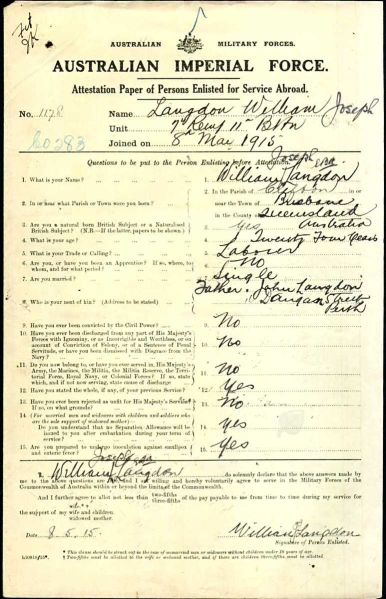 Fit
AUSTRALIAN MILITARY FORCES.
AUSTRALIAN IMPERIAL FORCE.
Attestation Paper of Persons Enlisted for Service Abroad.
No. 1178 Name Langdon William Joseph
60383 Unit 7 Reinf 11 Battn
Joined on 8 May 1915
Questions to be put to the Person Enlisting before Attestation.
1. What is your Name? 1. William Joseph Langdon
2. In or near what Parish or Town were you born? 2. In the Parish of in or
near the Town of Brisbane
in the County of Queensland
3. Are you a natural born British Subject or a Naturalised British Subject? (N.B.—If the latter, papers to be shown) 3. Yes Australia
4. What is your age? 4. Twenty Four Years
5. What is your Trade or Calling? 5. Labourer
6. Are you, or have you been an Apprentice? If so, where, to whom, and for what period? 6. No
7. Are you married? 7. Single
8. Who is your next of kin? (Address to be stated) 8. Father. John Langdon
Street
Perth
9. Have you ever been convicted by the Civil Power? 9. No
10. Have you ever been discharged from any part of His Majesty's Forces with Ignominy, or as Incorrigible and Worthless, or on account of Conviction of Felony, or of a Sentence of Penal Servitude, or have you been dismissed with Disgrace from the Navy? 10. No
*11. Do you now belong to, or have you ever served in, His Majesty's Army, the Marines, the Militia, the Militia Reserve, the Territorial Force, Royal Navy, or Colonial Forces? If so, state which, and if not now serving, state cause of discharge 11. No
12. Have you stated the whole, if any, of your previous Service? 12. Yes
13. Have you ever been rejected as unfit for His Majesty's Service? If so, on what grounds? 13. No
14. (For married men and widowers with children and soldiers who are the sole support of widowed mother)
Do you understand that no Separation Allowance will be issued to you after embarkation during your term of service? 14. Yes
15. Are you prepared to undergo inoculation against smallpox and enteric fever? 15. Yes
I, William Joseph Langdon do solemnly declare that the above answers made by me to the above questions are true, and I am willing and hereby voluntarily agree to serve in the Military Forces of the Commonwealth of Australia within or beyond the limits of the Commonwealth.
And I further agree to allot not less than two-fifths three-fifths of the pay payable to me from time to time during my service for the support of my wife and children
widowed mother.
Date 8. 5. 15. William J Langdon
Signature of Person Enlisted.
* This clause should be struck out in the case of unmarried men or widowers without children under 18 years of age.
† Two-fifths must be allotted to the wife or widowed mother, and if there are children three-fifths must be allotted.